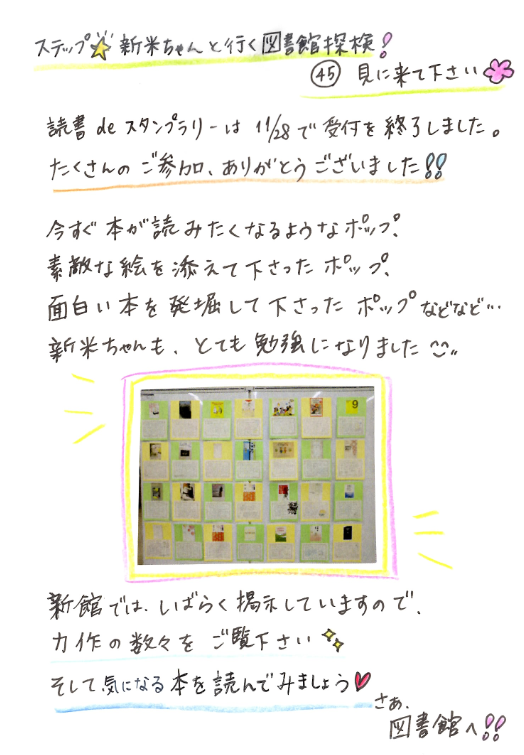 ステップ☆新米ちゃんと行く図書館探検!
㊺ 見に来て下さい
読書 de スタンプラリーは 11/28で受付を終了しました。
たくさんのご参加、ありがとうございました!!
今すぐ本が読みたくなるようなポップ、
素敵な絵を添えて下さったポップ、
面白い本を発掘して下さった ポップなどなど…
新米ちゃんも、とても勉強になりました
9
新館では、しばらく掲示していますので、
力作の数々を ご覧下さい
そして気になる本を読んでみましょう♥
さあ、
図書館へ!!